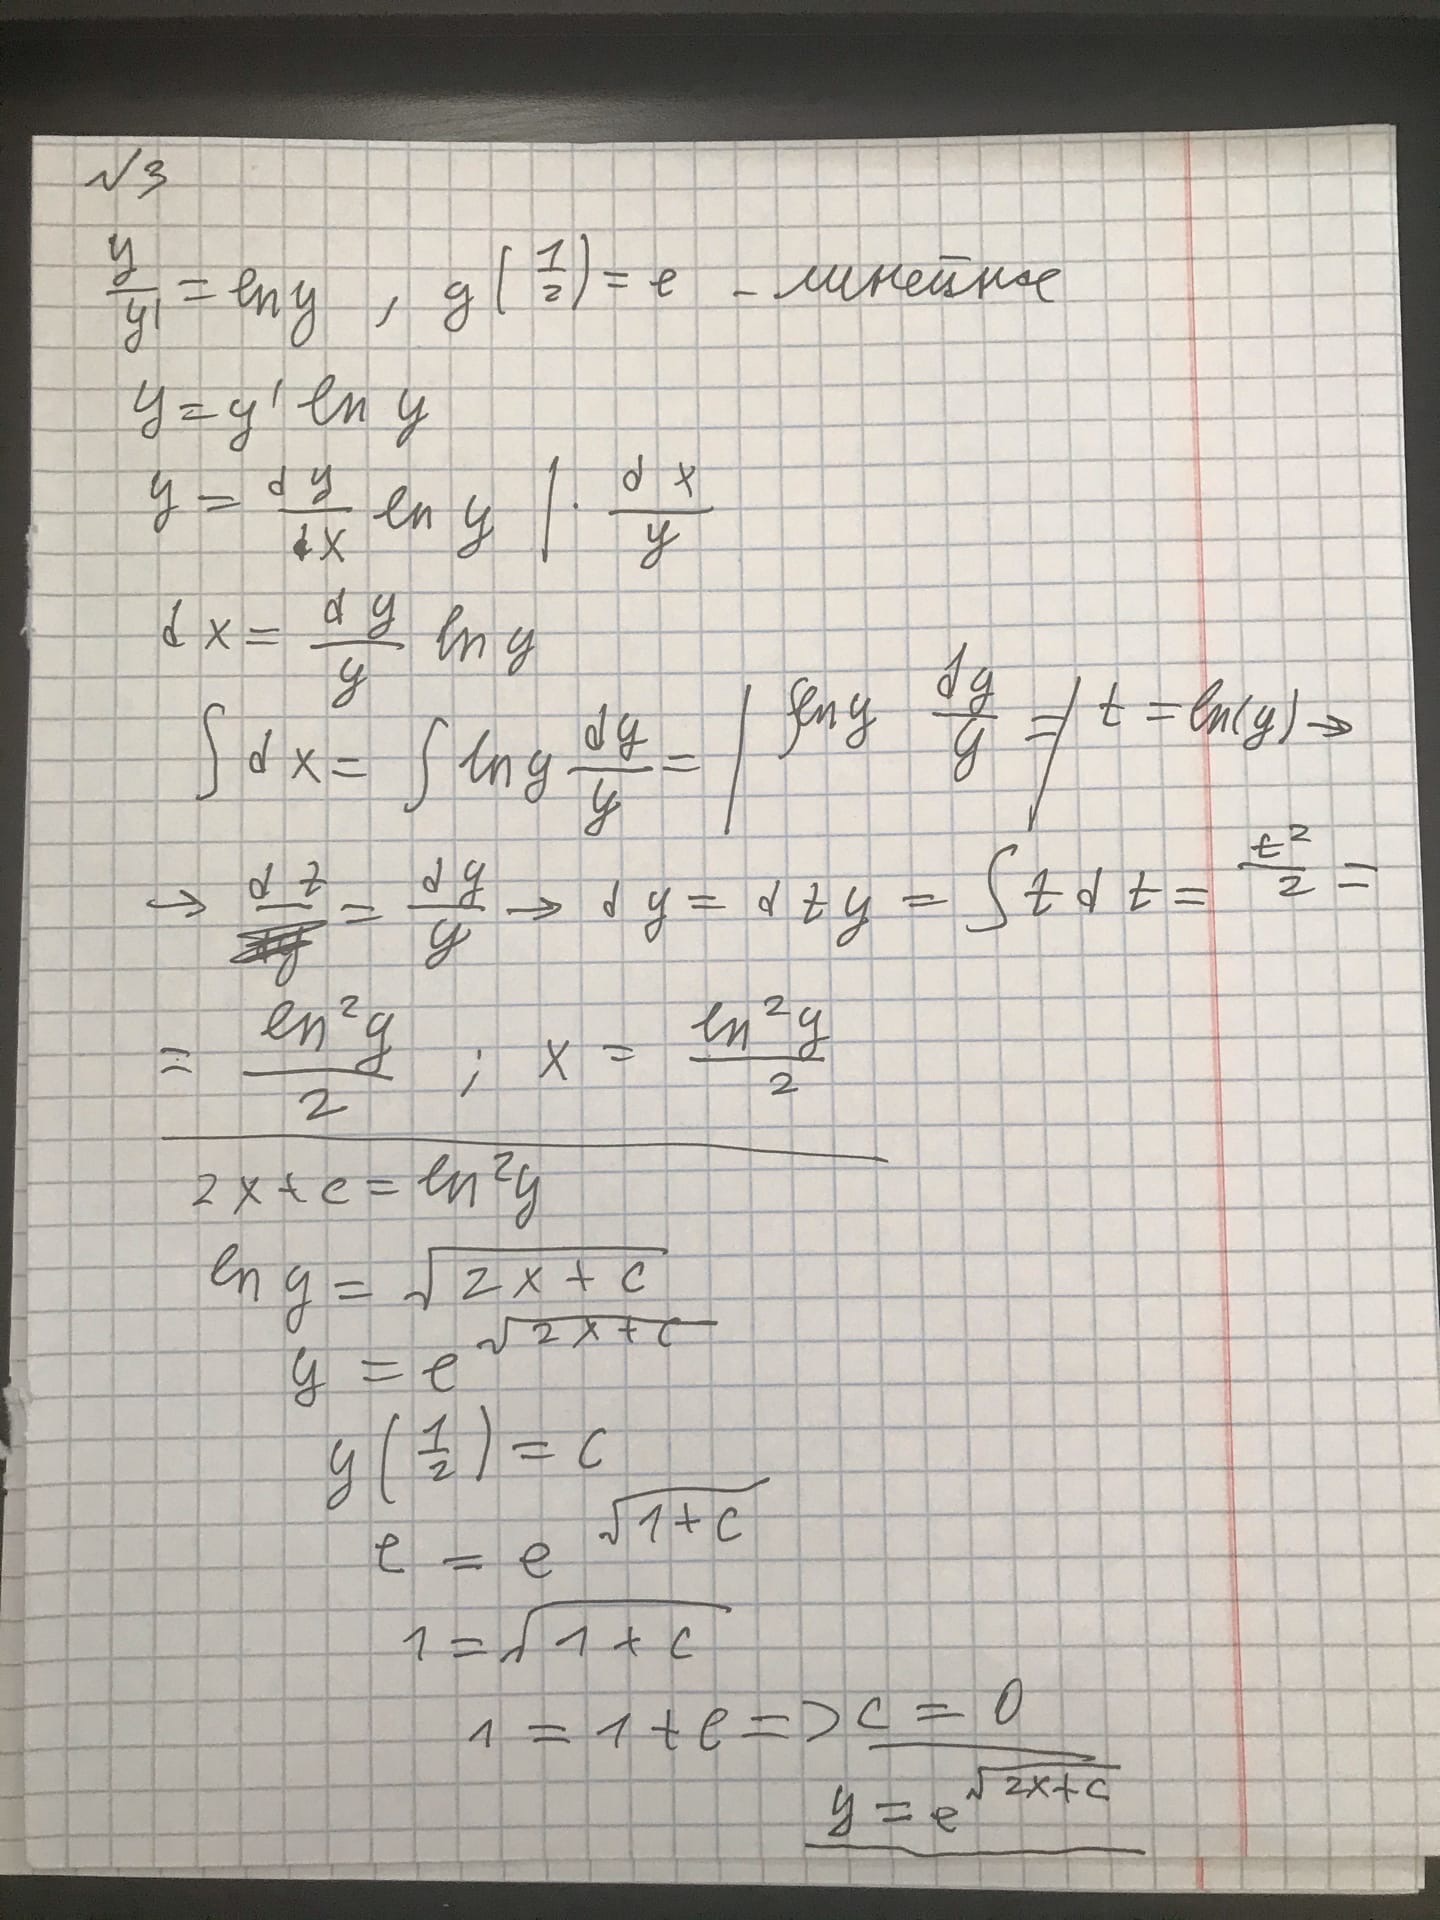 √3
y/y' = ln y , y(1/2) = e - линейное
y = y' ln y
y = dy/dx ln y | · dx/y
dx = dy/y ln y
∫dx = ∫ ln y dy/y = | ∫ln y dy/y = | t = ln(y) →
→ dt = dy/y → dy = dt y = ∫ t dt = t²/2 =
= ln²y/2 ; x = ln²y/2
2x+c = ln²y
ln y = √(2x+c)
y = e^√(2x+c)
y(1/2) = c
e = e^√(1+c)
1 = √(1+c)
1 = 1+c => c = 0
y = e^√(2x+c)